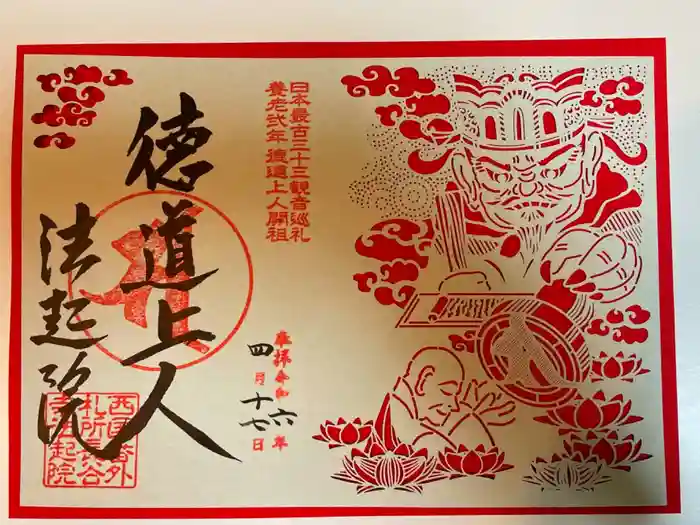 日本最古三十三観音巡礼
養老弐年徳道上人開祖
奉拝令和六年
四月十七日
徳道上人
法起院
西国番外
札所長谷
寺法起院